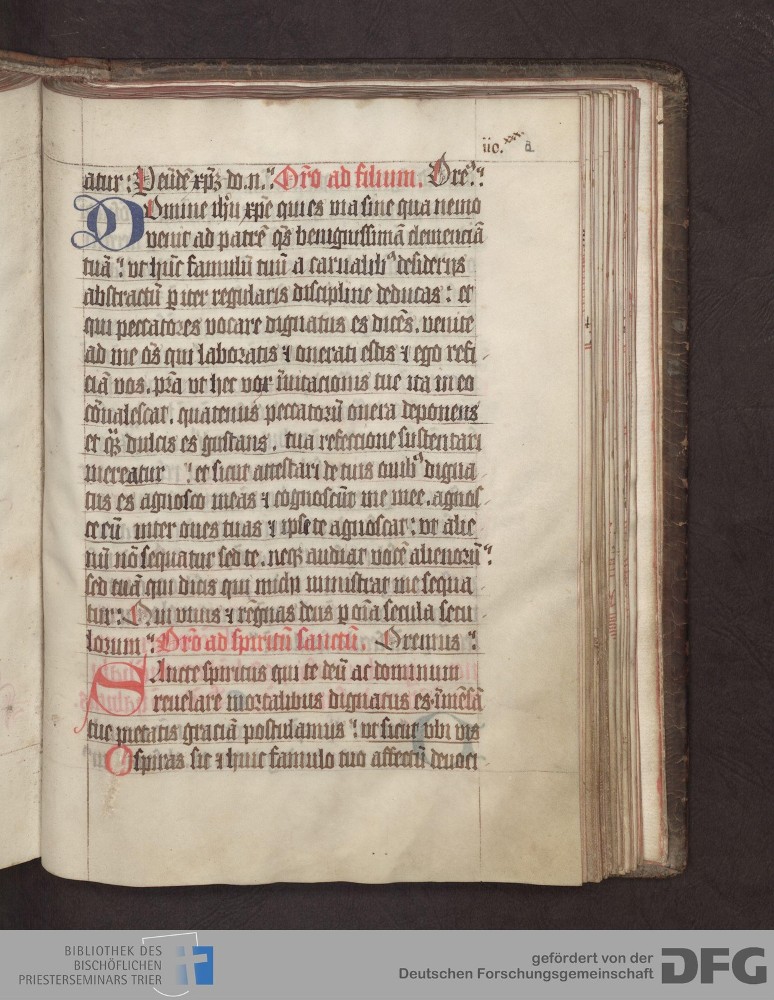 iio. xxx. a
atur : Per eūdē xp̄ȝ do. n. Orō ad filium. Ore.
Domine ihū xp̄e qui es via sine qua nemo
venit ad patrē q̄s benignissimā clemenciā
tuā ? vt hūc famulū tuū a carnalibꝰ desiderijs
abstractū ꝑ iter regularis discipline deducas : et
qui peccatores vocare dignatus es dicēs. venite
ad me oēs qui laboratis ⁊ onerati estis ⁊ ego refi-
ciā vos. pr̄a vt hec vox īuitacionis tue ita in eo
cōualescat. quatenus peccatorū onera deponens
et qȝ dulcis es gustans. tua refeccione sustentari
mereatur ? et sicut attestari de tuis ouibꝰ digna-
tus es agnosco meas ⁊ cognoscūt me mee. agnos-
ce eū inter oues tuas ⁊ ipse te agnoscat : vt alie-
nū nō sequatur sed te. neqȝ audiat vocē alienorū ?
sed tuā qui dicis qui michi ministrat me sequa-
tur : Qui viuis ⁊ regnas deus ꝑ oīa secula secu-
lorum Orō ad spiritū sanctū. Oremus
Sancte spiritus qui te deū ac dominum
reuelare mortalibus dignatus es. īmēsā
tue pietatis graciā postulamus ? vt sicut vbi vis
spiras sic ⁊ huic famulo tuo affectū deuoci-
BIBLIOTHEK DES
BISCHÖFLICHEN
PRIESTERSEMINARS TRIER
gefördert von der
Deutschen Forschungsgemeinschaft DFG